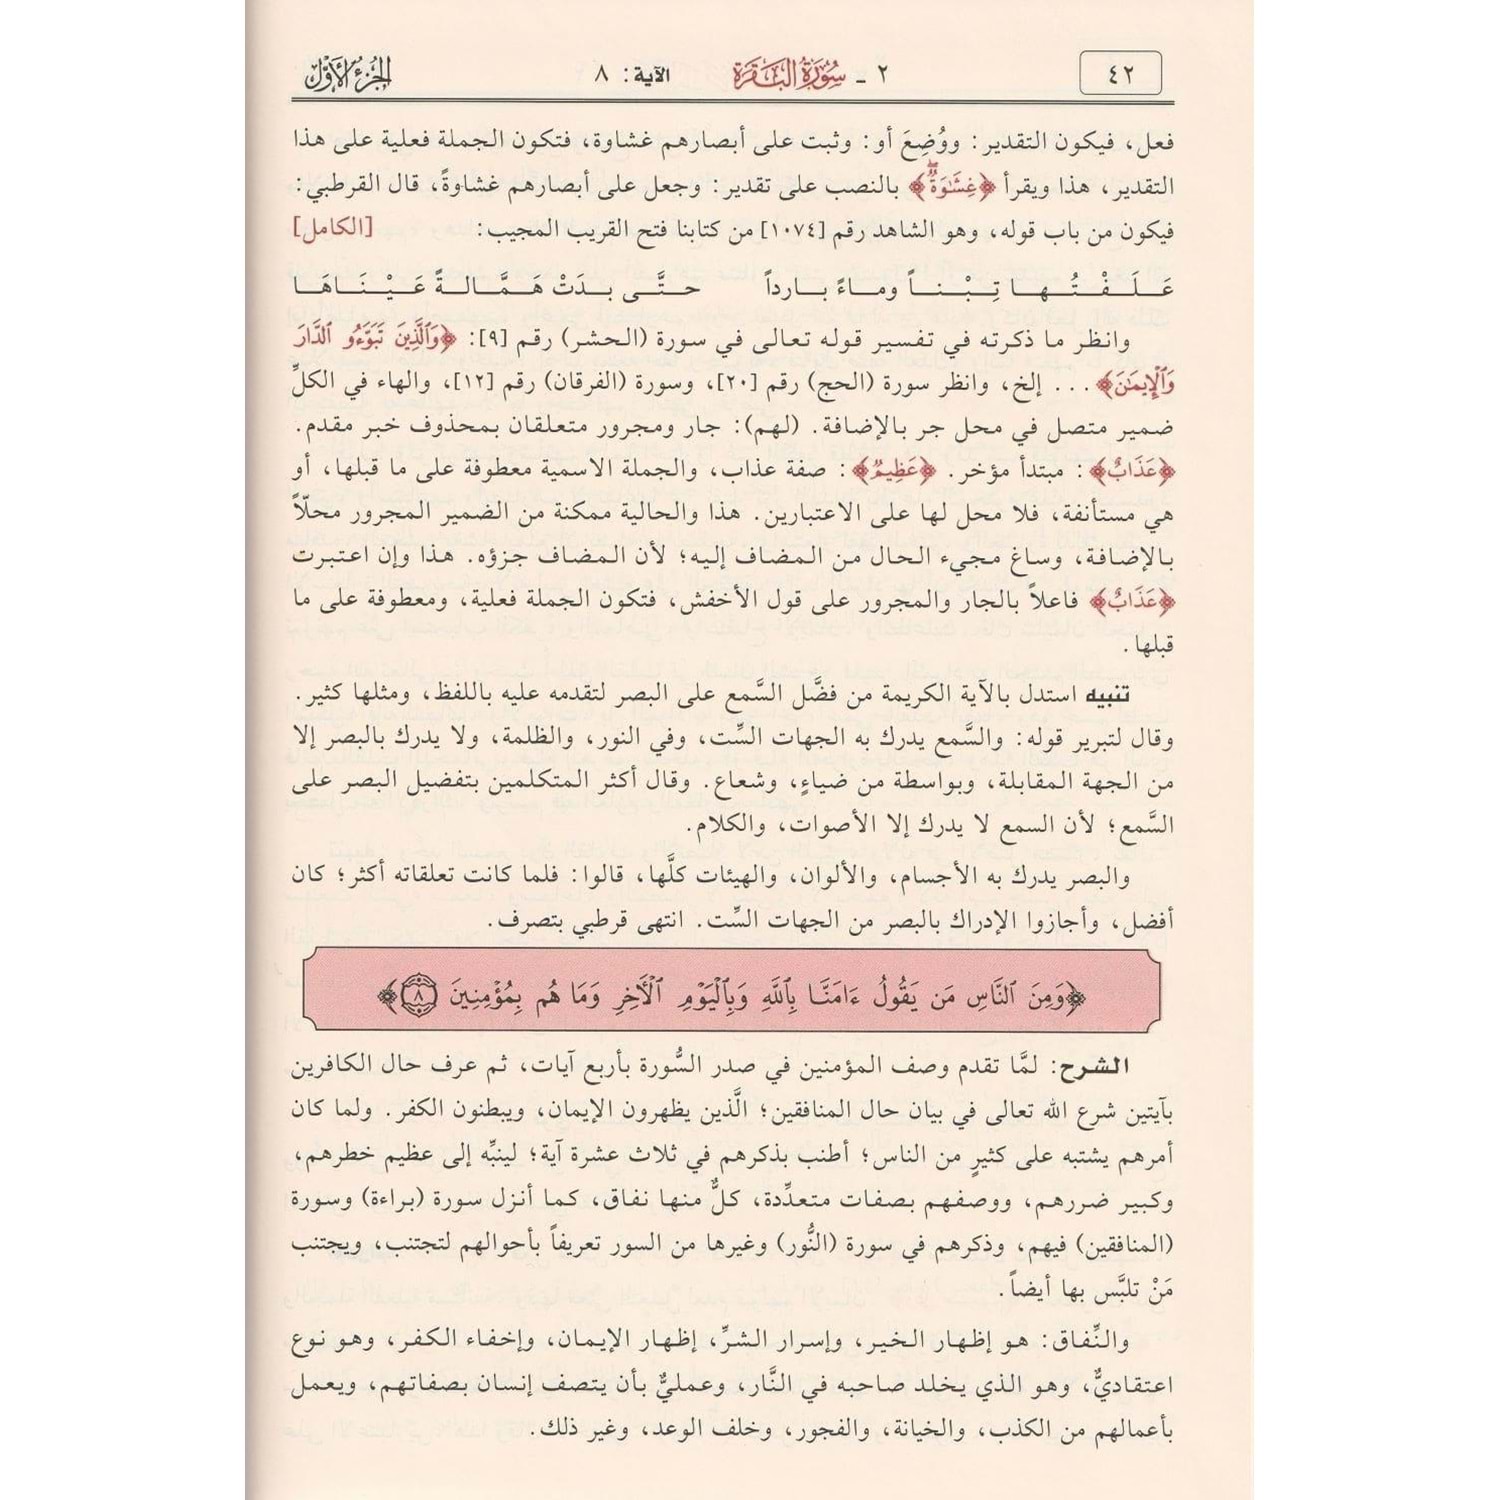 ٤٢ ٢ ـ سُورَةُ البَقَرَة الآية: ٨ الجزء الأول
فعل، فيكون التقدير: ووُضِعَ أو: وثبت على أبصارهم غشاوة، فتكون الجملة فعلية على هذا
التقدير، هذا ويقرأ ﴿غِشَٰوَةٌ﴾ بالنصب على تقدير: وجعل على أبصارهم غشاوةً، قال القرطبي:
فيكون من باب قوله، وهو الشاهد رقم [١٠٧٤] من كتابنا فتح القريب المجيب: [الكامل]
عَلَفْتُها تِبْناً وماءً بارداً حتَّى بدَتْ هَمَّالةً عَيْنَاهَا
وانظر ما ذكرته في تفسير قوله تعالى في سورة (الحشر) رقم [٩]: ﴿وَٱلَّذِينَ تَبَوَّءُو ٱلدَّارَ
وَٱلْإِيمَٰنَ﴾... إلخ، وانظر سورة (الحج) رقم [٢٠]، وسورة (الفرقان) رقم [١٢]، والهاء في الكلِّ
ضمير متصل في محل جر بالإضافة. (لهم): جار ومجرور متعلقان بمحذوف خبر مقدم.
﴿عَذَابٌ﴾: مبتدأ مؤخر. ﴿عَظِيمٌ﴾: صفة عذاب، والجملة الاسمية معطوفة على ما قبلها، أو
هي مستأنفة، فلا محل لها على الاعتبارين. هذا والحالية ممكنة من الضمير المجرور محلّاً
بالإضافة، وساغ مجيء الحال من المضاف إليه؛ لأن المضاف جزؤه. هذا وإن اعتبرت
﴿عَذَابٌ﴾ فاعلاً بالجار والمجرور على قول الأخفش، فتكون الجملة فعلية، ومعطوفة على ما
قبلها.
تنبيه استدل بالآية الكريمة من فضَّل السَّمع على البصر لتقدمه عليه باللفظ، ومثلها كثير.
وقال لتبرير قوله: والسَّمع يدرك به الجهات السِّت، وفي النور، والظلمة، ولا يدرك بالبصر إلا
من الجهة المقابلة، وبواسطة من ضياءٍ، وشعاع. وقال أكثر المتكلمين بتفضيل البصر على
السَّمع؛ لأن السمع لا يدرك إلا الأصوات، والكلام.
والبصر يدرك به الأجسام، والألوان، والهيئات كلَّها، قالوا: فلما كانت تعلقاته أكثر؛ كان
أفضل، وأجازوا الإدراك بالبصر من الجهات السِّت. انتهى قرطبي بتصرف.
﴿وَمِنَ ٱلنَّاسِ مَن يَقُولُ ءَامَنَّا بِٱللَّهِ وَبِٱلْيَوْمِ ٱلْأٓخِرِ وَمَا هُم بِمُؤْمِنِينَ ٨﴾
الشرح: لمَّا تقدم وصف المؤمنين في صدر السُّورة بأربع آيات، ثم عرف حال الكافرين
بآيتين شرع الله تعالى في بيان حال المنافقين؛ الَّذين يظهرون الإيمان، ويبطنون الكفر. ولما كان
أمرهم يشتبه على كثيرٍ من الناس؛ أطنب بذكرهم في ثلاث عشرة آية؛ لينبِّه إلى عظيم خطرهم،
وكبير ضررهم، ووصفهم بصفات متعدِّدة، كلٌّ منها نفاق، كما أنزل سورة (براءة) وسورة
(المنافقين) فيهم، وذكرهم في سورة (النُّور) وغيرها من السور تعريفاً بأحوالهم لتجتنب، ويجتنب
مَنْ تلبَّس بها أيضاً.
والنِّفاق: هو إظهار الخير، وإسرار الشرِّ، إظهار الإيمان، وإخفاء الكفر، وهو نوع
اعتقاديٌّ، وهو الذي يخلد صاحبه في النَّار، وعمليٌّ بأن يتصف إنسان بصفاتهم، ويعمل
بأعمالهم من الكذب، والخيانة، والفجور، وخلف الوعد، وغير ذلك.